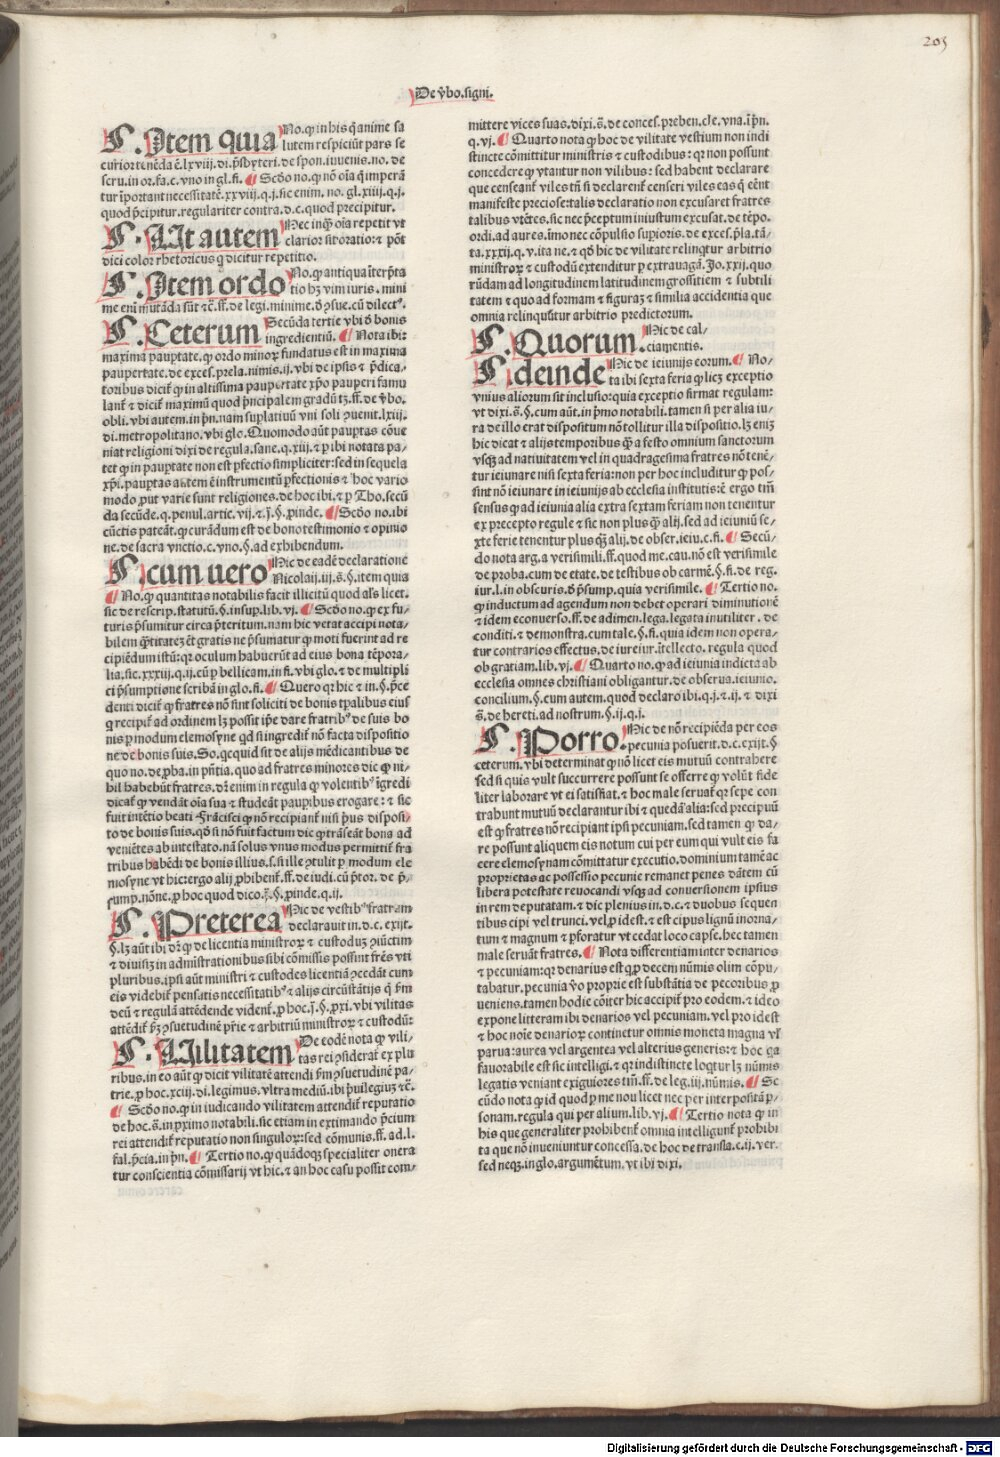 205
De v̄bo.signi.
§.Item quia No.qꝫ in his q̄ anime sa
lutem respiciūt pars se
curior tenēda ē.lxviij.di.p̄sbyteri.de spon.iuuenis.no.de
scru.in or.fa.c.vno in gl.fi. Scdo no.qꝫ nō oīa q̄ imperā
tur īportant necessitatē.xxviij.q.j.sic enim. no.gl.xiiij.q.j.
quod p̄cipitur.regulariter contra.d.c.quod precipitur.
§.Ait autem Nec inqꝫ oīa repetit vt
clarior sit oratio: ⁊ pōt
dici color rhetoricus q̄ dicitur repetitio.
§.Item ordo No.qꝫ antiqua īterp̄ta
tio hꝫ vim iuris.mini
me enī mutāda sūt ⁊c̄.ff.de legi.minime.
§.Ceterum Secūda tertie vbi d̓ bonis
ingredientiū. Nota ibi:
maxima pauptate.qꝫ ordo minoꝝ fundatus est in maxima
paupertate.de exces.prela.nimis.ij.vbi de ipsis ⁊ p̄dica/
toribus dicit̄ qꝫ in altissima paupertate xp̄o pauperi famu
lant̄ ⁊ dicit̄ maximū quod p̄ncipalem gradū tꝫ.ff.de v̄bo.
obli.vbi autem.in p̄n.nam suplatiuū vni soli ꝯuenit.lxiij.
di.metropolitano.vbi glo. Quomodo aūt pauptas cōue
niat religioni dixi de regula.sane.q.xiij.⁊ p ibi notata pa/
tet qꝫ in pauptate non est pfectio simpliciter: sed in sequela
xp̄i.pauptas autem ē instrumentū pfectionis ⁊ hoc vario
modo ꝓut varie sunt religiones.de hoc ibi.⁊ p Tho.secū
da secūde.q.penul.artic.vij.⁊ j.§.ꝓinde. Scdo no.ibi
cūctis pateāt.qꝫ curādum est de bono testimonio ⁊ opinio
ne.de sacra vnctio.c.vno.§.ad exhibendum.
§.cum uero Hic de eadē declaratione
Nicolaij.iij.s.§.item quia
No.qꝫ quantitas notabilis facit illicitū quod al's licet.
sic de rescrip.statutū.§.insup.lib.vj. Scdo no.qꝫ ex fu/
turis p̄sumitur circa p̄teritum.nam hic vetat accipi nota/
bilem q̄titatez ēt gratis ne p̄sumatur qꝫ moti fuerint ad re
cipiēdum istū: qꝛ oculum habuerūt ad eius bona tēpora/
lia.sic.xxxij.q.ij.cū p bellicam.in fi.vbi glo.⁊ de multipli
ci p̄sumptione scribā in glo.fi. Quero qꝛ hic ⁊ in.§.p̄ce
denti dicit̄ qꝫ fratres nō sint soliciti de bonis tp̄alibus eius
q̄ recipit̄ ad ordinem lꝫ possit ip̄e dare fratribꝰ de suis bo
nis p modum elemosyne qd̓ si ingredit̄ nō facta dispositio
ne de bonis suis.So.qꝫ quid sit de alijs mēdicantibus de
quo no.de ꝓba.in p̄ntia.quo ad fratres minores dic qꝫ ni/
hil habebūt fratres.dꝛ enim in regula qꝫ volentibꝰ īgredi
dicat̄ qꝫ vendāt oīa sua ⁊ studeāt paupibus erogare: ⁊ sic
fuit intētio beati Frācisci qꝫ nō recipiant̄ nisi p̄us disposi/
to de bonis suis.qd̓ si nō fuit factum dic qꝫ trāseāt bona ad
veniētes ab intestato.nā solus vnus modus permittit̄ fra
tribus habēdi de bonis illius.s.si ille ꝯtulit p modum ele
mosyne vt hic: ergo alij ꝓhibent̄.ff.de iudi.cū p̄tor.de p̄/
sump.nōne.ꝓ hoc quod dico.j.§.ꝓinde.q.ij.
§.Preterea Hic de vestibꝰ fratrum
declarauit in.d.c.exijt.
§.lꝫ aūt ibi dꝛ qꝫ de licentia ministroꝝ ⁊ custoduꝫ ꝯiūctim
⁊ diuisiꝫ in admīstrationibus sibi cōmissis possint fr̄es vti
pluribus.ipsi aūt ministri ⁊ custodes licentiā ꝯcedāt cum
eis videbit̄ pensatis necessitatibꝰ ⁊ alijs circūstātijs q̄ s̄m
deū ⁊ regulā attēdende vident̄.ꝓ hoc.j.§.ꝓxi.vbi vilitas
attēdit̄ s̄m ꝯsuetudinē pr̄ie ⁊ arbitriū ministroꝝ ⁊ custodū:
§.Uilitatem De eodē nota qꝫ vili/
tas rei ꝯsiderat̄ ex plu
ribus.in eo aūt qꝫ dicit vilitatē attendi s̄m ꝯsuetudinē pa/
trie.ꝓ hoc.xciij.di.legimus.vltra mediū.ibi p̄uilegiuꝫ ⁊c̄.
Scdo no.qꝫ in iudicando vilitatem attendit̄ reputatio
de hoc.s.in ꝓximo notabili.sic etiam in extimando p̄cium
rei attendit̄ reputatio non singuloꝝ: sed cōmunis.ff.ad.l.
fal.p̄cia.in p̄n. Tertio no.qꝫ quādoqꝫ specialiter onera
tur conscientia cōmissarij vt hic.⁊ an hoc casu possit com/
mittere vices suas.dixi.s.de conces.preben.cle.vna.ī p̄n.
q.vj. Quarto nota qꝫ hoc de vilitate vestium non indi
stincte cōmittitur ministris ⁊ custodibus: qꝛ non possunt
concedere qꝫ vtantur non vilibus: sed habent declarare
que censeant̄ viles tn̄ si declarent̄ censeri viles eas q̄ eēnt
manifeste preciose: talis declaratio non excusaret fratres
talibus vtētes.sic nec p̄ceptum iniustum excusat.de tēpo.
ordi.ad aures.īmo nec cōpulsio supioris.de exces.p̄la.tā/
ta.xxxij.q.v.ita ne.⁊ qd̓ hic de vilitate relinqtur arbitrio
ministroꝝ ⁊ custodū extenditur p extrauagā.Jo.xxij.quo
rūdam ad longitudinem latitudinem grossitiem ⁊ subtili
tatem ⁊ quo ad formam ⁊ figuraꝫ ⁊ similia accidentia que
omnia relinquūtur arbitrio predictorum.
§.Quorum. Hic de cal/
ciamentis.
§.deinde Hic de ieiunijs eorum. No/
ta ibi sexta feria qꝫ licꝫ exceptio
vnius aliorum sit inclusio: quia exceptio firmat regulam:
vt dixi.s.§.cum aūt.in p̄mo notabili.tamen si per alia iu/
ra de illo erat dispositum nō tollitur illa dispositio.lꝫ eniꝫ
hic dicat ⁊ alijs temporibus qꝫ a festo omnium sanctorum
vsqꝫ ad natiuitatem vel in quadragesima fratres nō tenē/
tur ieiunare nisi sexta feria: non per hoc includitur qꝫ pos/
sint nō ieiunare in ieiunijs ab ecclesia institutis: ē ergo tm̄
sensus qꝫ ad ieiunia alia extra sextam feriam non tenentur
ex precepto regule ⁊ sic non plus qꝫ alij.sed ad ieiuniū se/
xte ferie tenentur plus qꝫ alij.de obser.ieiu.c.fi. Secū/
do nota arg.a verisimili.ff.quod me.cau.nō est verisimile
de proba.cum de etate.de testibus ob carmē.§.fi.de reg.
iur.l.in obscuris.d̓ p̄sump.quia verisimile. Tertio no.
qꝫ inductum ad agendum non debet operari diminutionē
⁊ idem econuerso.ff.de adimen.lega.legata inutiliter.de
conditi.⁊ demonstra.cum tale.§.fi.quia idem non opera/
tur contrarios effectus.de iureiur.ītellecto.regula quod
ob gratiam.lib.vj. Quarto no.qꝫ ad ieiunia indicta ab
ecclesia omnes christiani obligantur.de obserua.ieiunio.
concilium.§.cum autem.quod declaro ibi.q.j.⁊ ij.⁊ dixi
s.de hereti.ad nostrum.§.ij.q.j.
§.Porro. Hic de nō recipiēda per eos
pecunia posuerit.d.c.exijt.§
ceterum.vbi determinat qꝫ nō licet eis mutuū contrahere
sed si quis vult succurrere possunt se offerre qꝫ volūt fide
liter laborare vt ei satisfiat.⁊ hoc male seruat̄ qꝛ sepe con
trahunt mutuū declarantur ibi ⁊ quedā alia: sed precipuū
est qꝫ fratres nō recipiant ipsi pecuniam.sed tamen qꝫ da/
re possunt aliquem eis notum cui per eum qui vult eis fa
cere elemosynam cōmittatur executio.dominium tamē ac
proprietas ac possessio pecunie remanet penes dātem cū
libera potestate reuocandi vsqꝫ ad conuersionem ipsius
in rem deputatam.⁊ dic plenius in.d.c.⁊ duobus sequen
tibus cipi vel trunci.vel ꝓ idest.⁊ est cipus lignū inorna/
tum ⁊ magnum ⁊ pforatur vt cedat loco capse.hec tamen
male seruāt fratres. Nota differentiam inter denarios
⁊ pecuniam: qꝛ denarius est q̄ ꝓ decem nūmis olim cōpu/
tabatur.pecunia v̄o proprie est substātia de pecoribus ꝓ
ueniens.tamen hodie cōiter hic accipit̄ pro eodem.⁊ ideo
expone litteram ibi denarios vel pecuniam.vel pro idest
⁊ hoc noīe denarioꝝ continetur omnis moneta magna vl̓
parua: aurea vel argentea vel alterius generis: ⁊ hoc qꝛ
fauorabile est sic intelligi.⁊ qꝛ indistincte loqtur lꝫ nūmis
legatis veniant exiguiores tm̄.ff.de leg.iij.nūmis. Se
cūdo nota qꝫ id quod p me nou licet nec per interpositā p/
sonam.regula qui per alium.lib.vj. Tertio nota qꝫ in
his que generaliter prohibent̄ omnia intelligunt̄ prohibi
ta que nō inueniuntur concessa.de hoc de transla.c.ij.ver.
sed neqꝫ.in glo.argumētum.vt ibi dixi.
Digitalisierung gefördert durch die Deutsche Forschungsgemeinschaft - DFG